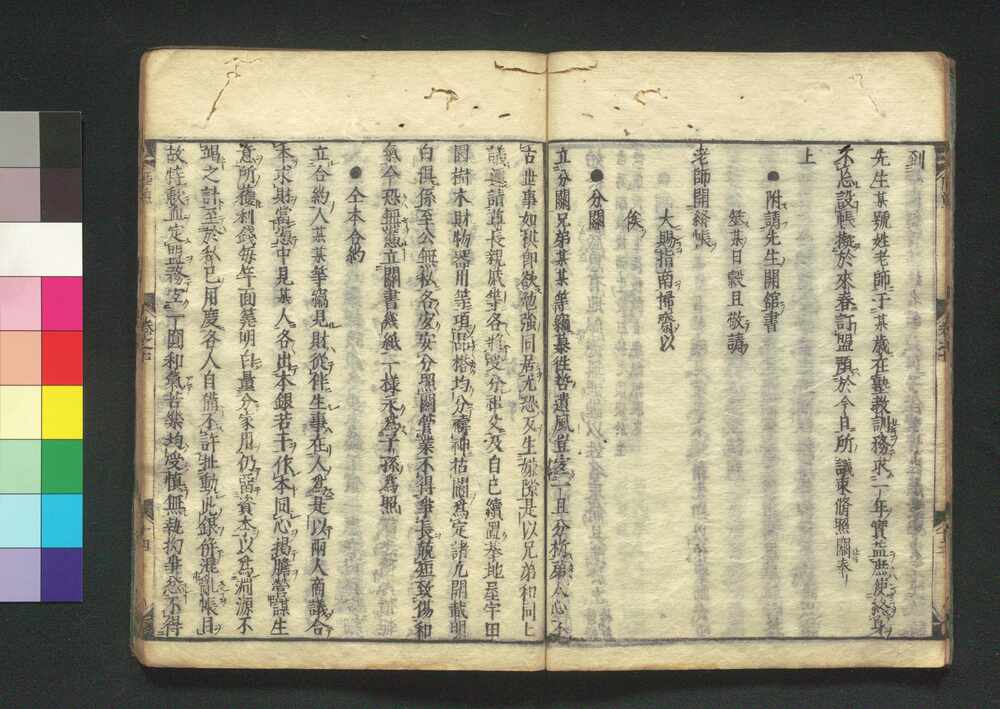 到
先生某號姓老師于某歲在塾教訓務求一年實益無使終身
不怠設帳擬於來春訂盟預於今日所議東脩照關奉
上
●附請先生開舘書
筮某日穀且敬請
老師開絳帳
大賜指南掃齋以
俟
●分關
立分關兄弟某某等竊慕徃哲遺風豈宜一旦分析弟人心不
古世事如棋即欲勉強同居尤恐反生嫌隙是以兄弟和同上
議邀請尊長親戚等各將受分祖父及自己續置基地屋宇田
園樹木財物器用等項品搭均分禱神拈鬮爲定諸凡開載明
白俱係至公無私各宜安分照關管業不得爭長競短致傷和
氣今恐無憑立關書幾紙一樣永爲子孫爲照
●仝本合約
立合約人某某等竊見財從伴生事在人爲是以兩人商議合
本求財當憑中見某人各出本銀若干作本同心揭膽營謀生
意所獲利錢每年面筭明白量分家用仍留資本以爲淵源不
竭之計至於私已用度各人自備不許扯動此銀併混亂帳目
故特歃血定盟務宜一團和氣苦樂均受慎無執拗爭忿不得